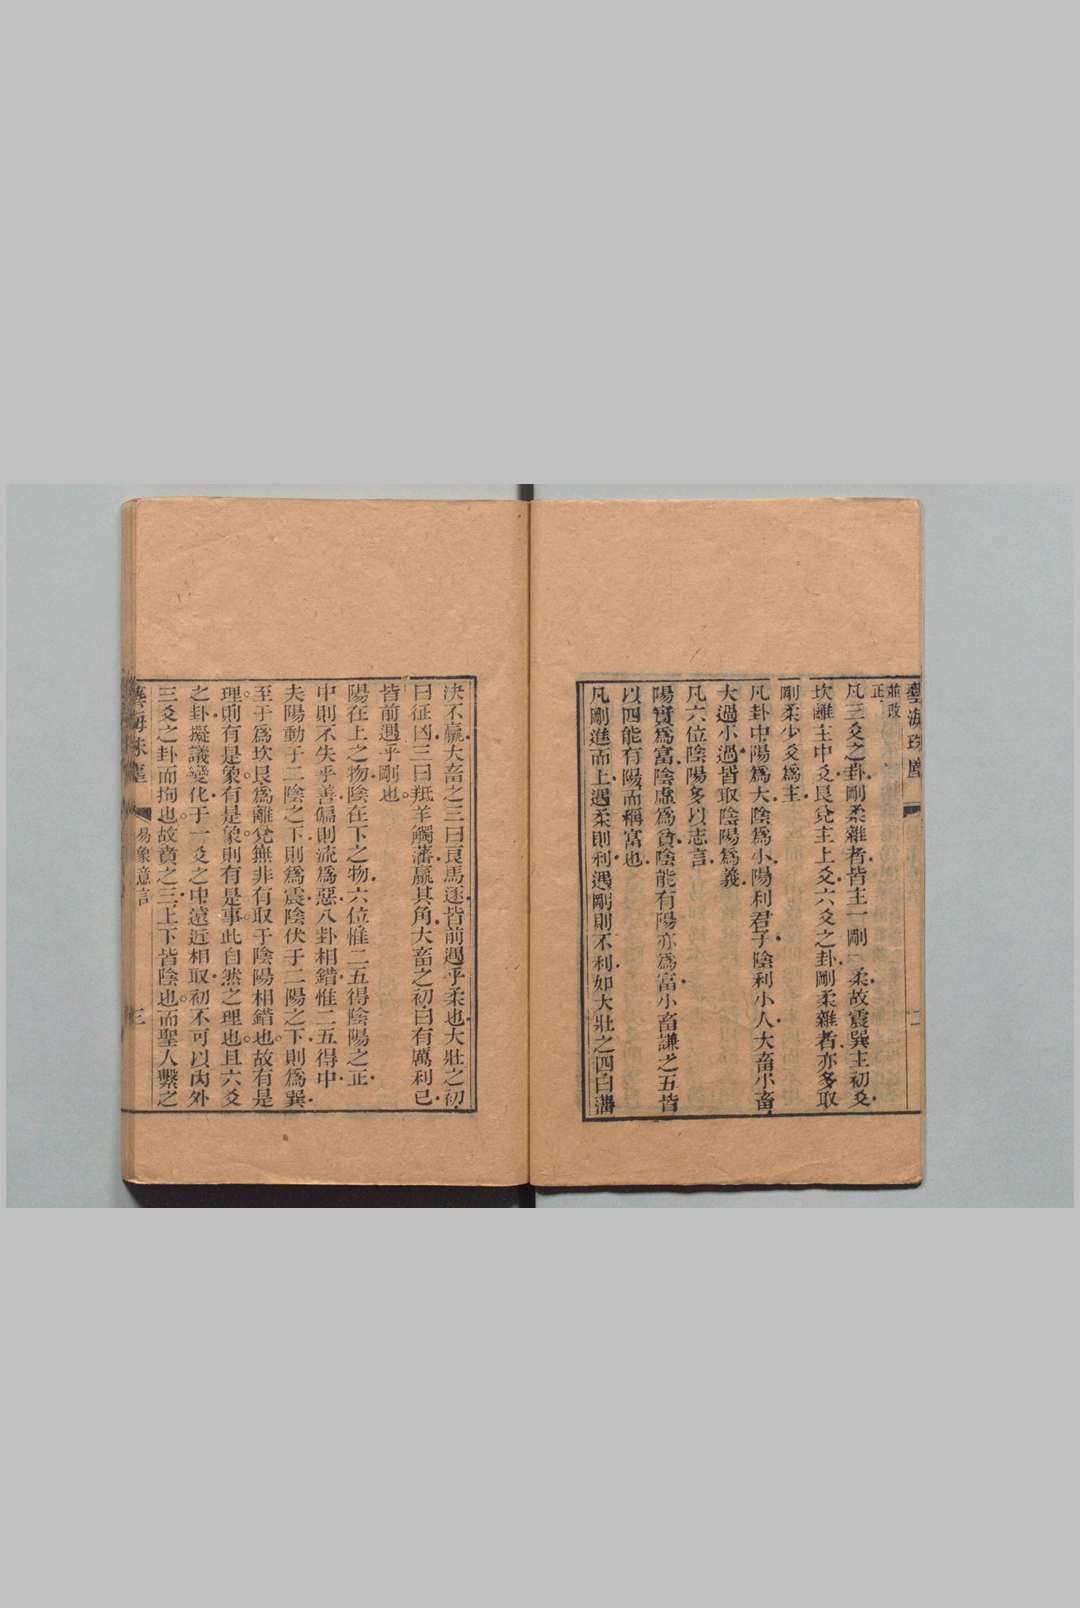 藝海珠塵
二
並改
正
凡三爻之卦剛柔雜者皆主一剛一柔故震巽主初爻
坎離主中爻艮兌主上爻六爻之卦剛柔雜者亦多取
剛柔少爻爲主
凡卦中陽爲大陰爲小陽利君子陰利小人大畜小畜
大過小過皆取陰陽爲義
凡六位陰陽多以志言
陽實爲富陰虛爲貧陰能有陽亦爲富小畜謙之五皆
以四能有陽而稱富也
凡剛進而上遇柔則利遇剛則不利如大壯之四曰藩
決不羸大畜之三曰良馬逐皆前遇乎柔也大壯之初
曰征凶三曰羝羊觸藩羸其角大畜之初曰有厲利已
皆前遇乎剛也
陽在上之物陰在下之物六位惟二五得陰陽之正
中則不失乎善偏則流爲惡八卦相錯惟二五得中
夫陽動于二陰之下則爲震陰伏于二陽之下則爲巽
至于爲坎艮爲離兌無非有取于陰陽相錯也故有是
理則有是象有是象則有是事此自然之理也且六爻
之卦擬議變化于一爻之中遠近相取初不可以內外
三爻之卦而拘也故賁之三上下皆陰也而聖人繫之
藝海珠塵
易象意言
三